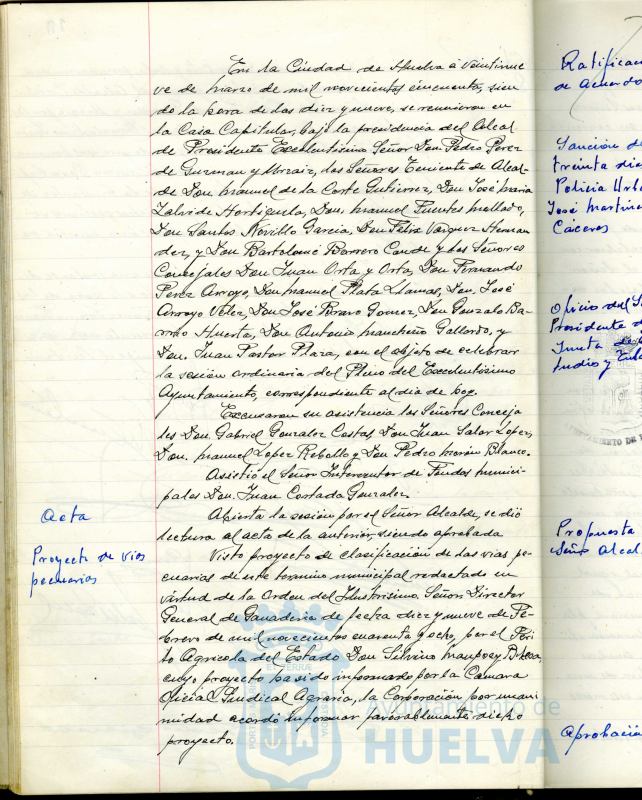 En la Ciudad de Huelva a veintinue
ve de marzo de mil novecientos cincuenta, sien
do la hora de las diez y nueve, se reunieron en
la Casa Capitular, bajo la presidencia del Alcal
de Presidente Excelentísimo Señor Don Pedro Perez
de Guzman y Urzaiz, los Señores Teniente de Alcal-
de Don Manuel de la Corte Gutierrez, Don José Maria
Zalvide Hortiguela, Don Manuel Fuentes Mallado,
Don Santos Novillo Garcia, Don Félix Vazquez Hernan
dez, y Don Bartolomé Borrero Conde y los Señores
Concejales Don Juan Orta y Orta, Don Fernando
Perez Arroyo, Don Manuel Plata Llamas, Don José
Arroyo Velez, Don José Bravo Gomez, Don Gonzalo Ba
rroso Huerta, Don Antonio Mancheño Gallardo, y
Don Juan Pastor Plaza, con el objeto de celebrar
la sesión ordinaria del Pleno del Excelentísimo
Ayuntamiento, correspondiente al día de hoy.
Excusaron su asistencia los Señores Conceja
les Don Gabriel Gonzalez Costas, Don Juan Salar Lopez,
Don Manuel Lopez Rebollo y Don Pedro Morón Blanco.
Asistió el Señor Interventor de Fondos Munici-
pales Don Juan Cortada Gonzalez.
Acta
Abierta la sesión por el Señor Alcalde, se dió
lectura al acta de la anterior, siendo aprobada
Proyecto de vias
pecuarias
Visto proyecto de clasificación de las vias pe-
cuarias de este termino municipal redactado en
virtud de la Orden del Ilustrisimo Señor Director
General de Ganaderia de fecha diez y nueve de Fe-
brero de mil novecientos cuarenta y ocho, por el Peri
to Agricola del Estado Don Silvino Maupoey
cuyo proyecto ha sido informado por la Camara
Oficial Sindical Agraria, la Corporación por unani
midad acordó informar favorablemente dicho
proyecto.
Ayuntamiento de
HUELVA
Ratificac
de acuerdo
Sanción de
treinta día
Policia Urb
José Martin
Caceres
Oficio del S
Presidente d
Junta de
Propuesta
Señor Alcal
Aprobació